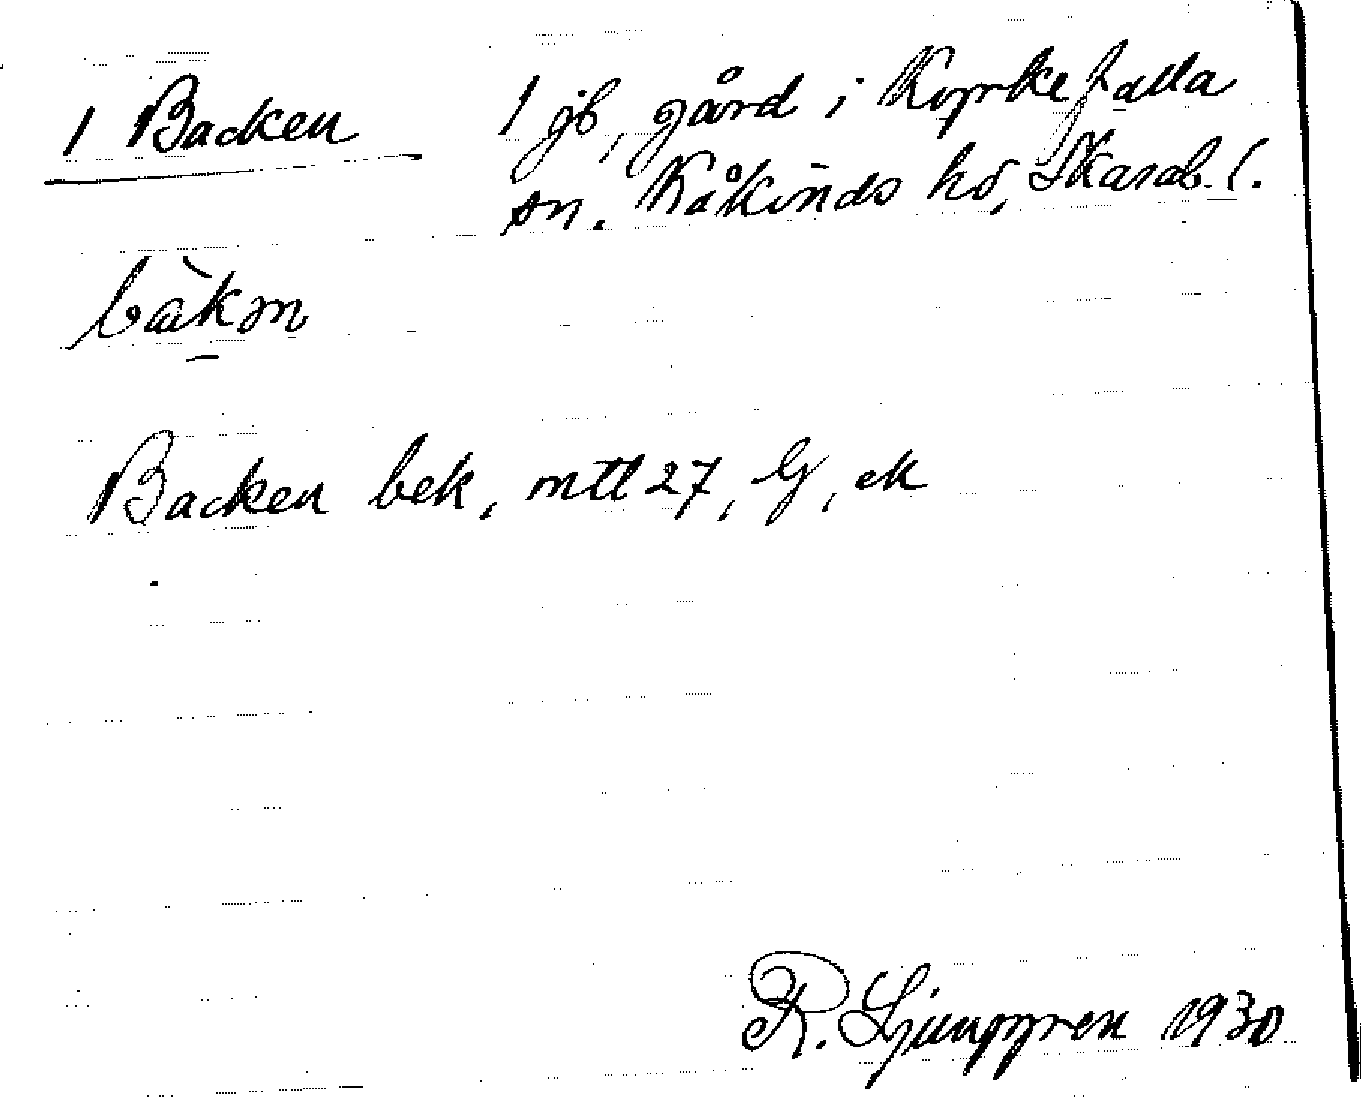 1 Backen 1 jb, gård i Kyrkefalla
sn. Kåkinds hd, Skarab. l.
bàkm̥
Backen bek, mtl 27, G, ek
R. Ljunggren 1930